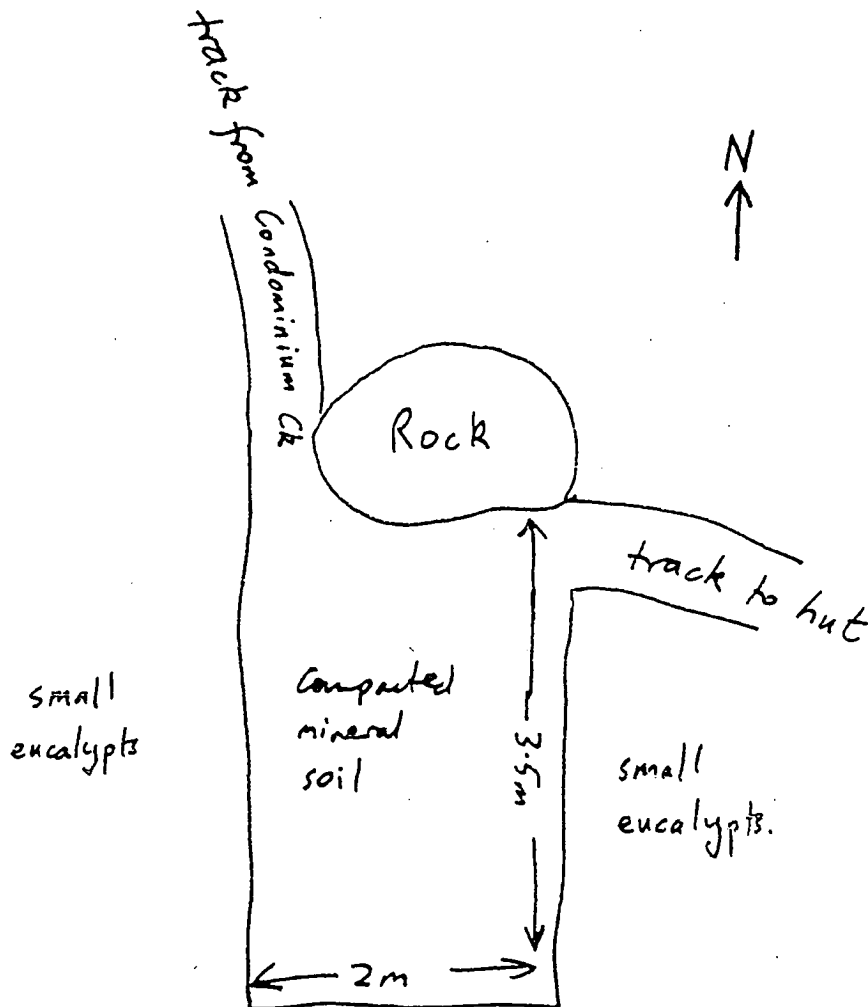 track from Condominium Ck
N
Rock
track to hut
small
eucalypts
compacted
mineral
soil
3.5m
small
eucalypts.
2m